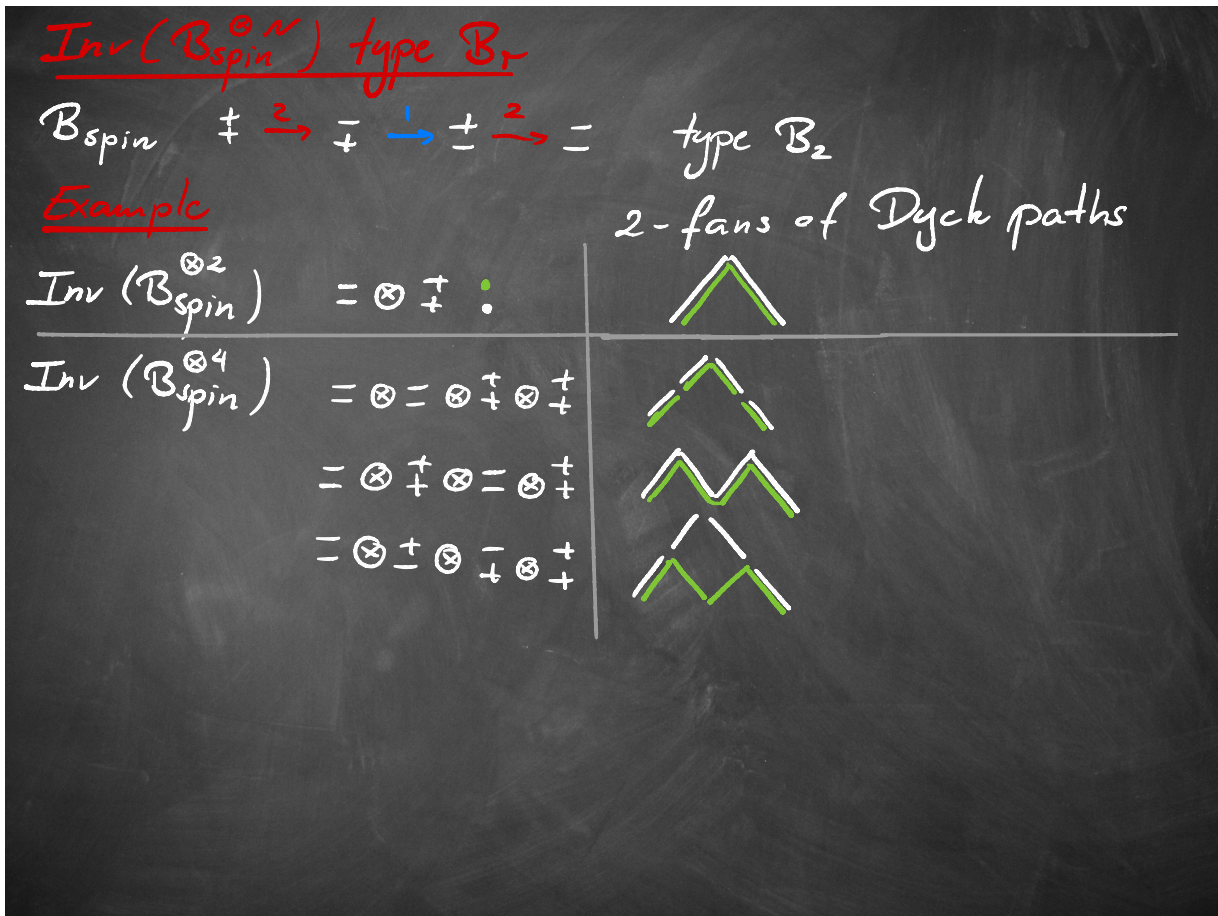 Inv(B_spin^⊗N) type B_r
B_spin + + →2 − + →1 + − →2 − − type B_2
Example
2-fans of Dyck paths
Inv(B_spin^⊗2) = ⊗ ‡ :
Inv(B_spin^⊗4) = ⊗ = ⊗ ‡ ⊗ ‡
= ⊗ ‡ ⊗ = ⊗ ‡
= ⊗ ± ⊗ ∓ ⊗ ‡